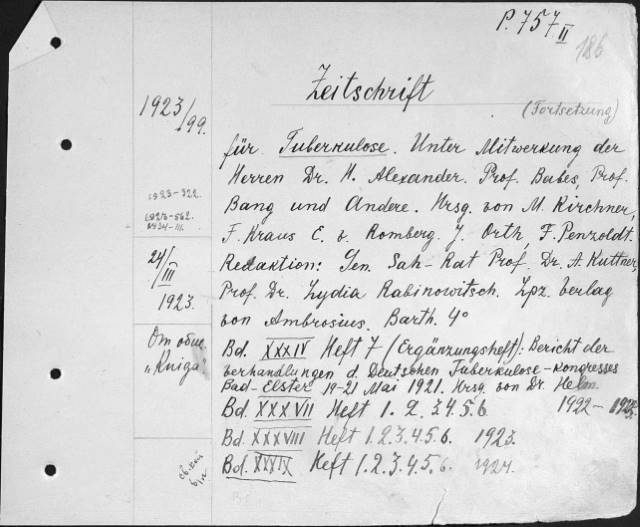 P. 757 II
186
Zeitschrift
(Fortsetzung)
1923/99.
für Tuberkulose. Unter Mitwerkung der
Herren Dr. H. Alexander. Prof. Babes, Prof.
1923-322.
Bang und Andere. Hrsg. von M. Kirchner,
1923-562.
1924-III.
F. Kraus E. v. Romberg. J. Orth, F. Penzoldt.
24/III
1923.
Redaktion: Gen. San-Rat Prof. Dr. A. Kuttner,
Prof. Dr. Lydia Rabinowitsch. Lpz. Verlag
von Ambrosius. Barth. 4°
От общ.
„Kniga”
Bd. XXXIV Heft 7 (Ergänzungsheft): Bericht der
verhandlungen d. Deutschen Tuberkulose-kongresses
Bad-Elster 19-21 Mai 1921. Hrsg. von Dr. Helm.
Bd. XXXVII Heft 1. 2. 3.4.5.6. 1922-
Bd. XXXVIII Heft 1.2.3.4.5.6. 1923.
Bd. XXXIX Heft 1.2.3.4.5.6. 1924.